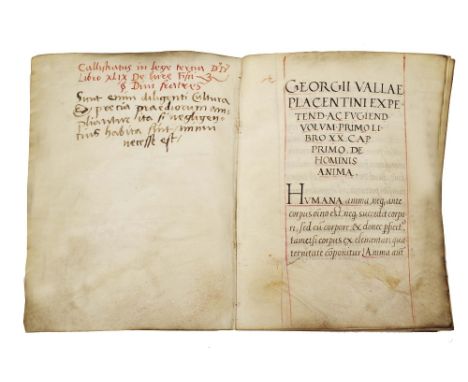 Callistratus in lege tertia
Libro XLIX De iure Fisci
§ Divi fratres
Sunt enim diligenti Cultura
pretia praediorum am
pliantur ita si negligen
tius habita sint minui
necesse est
GEORGII VALLAE
PLACENTINI EXPE-
TEND·AC FVGIEND
VOLVM·PRIMO LI-
BRO XX·CAP
PRIMO·DE
HOMINIS
ANIMA.
HVMANA anima neq. ante
corpus est neq. succedit corpo
ri, sed cū corpore & donec
tametsi corpus ex elementari qua
ternitate cōponitur. Anima aūt